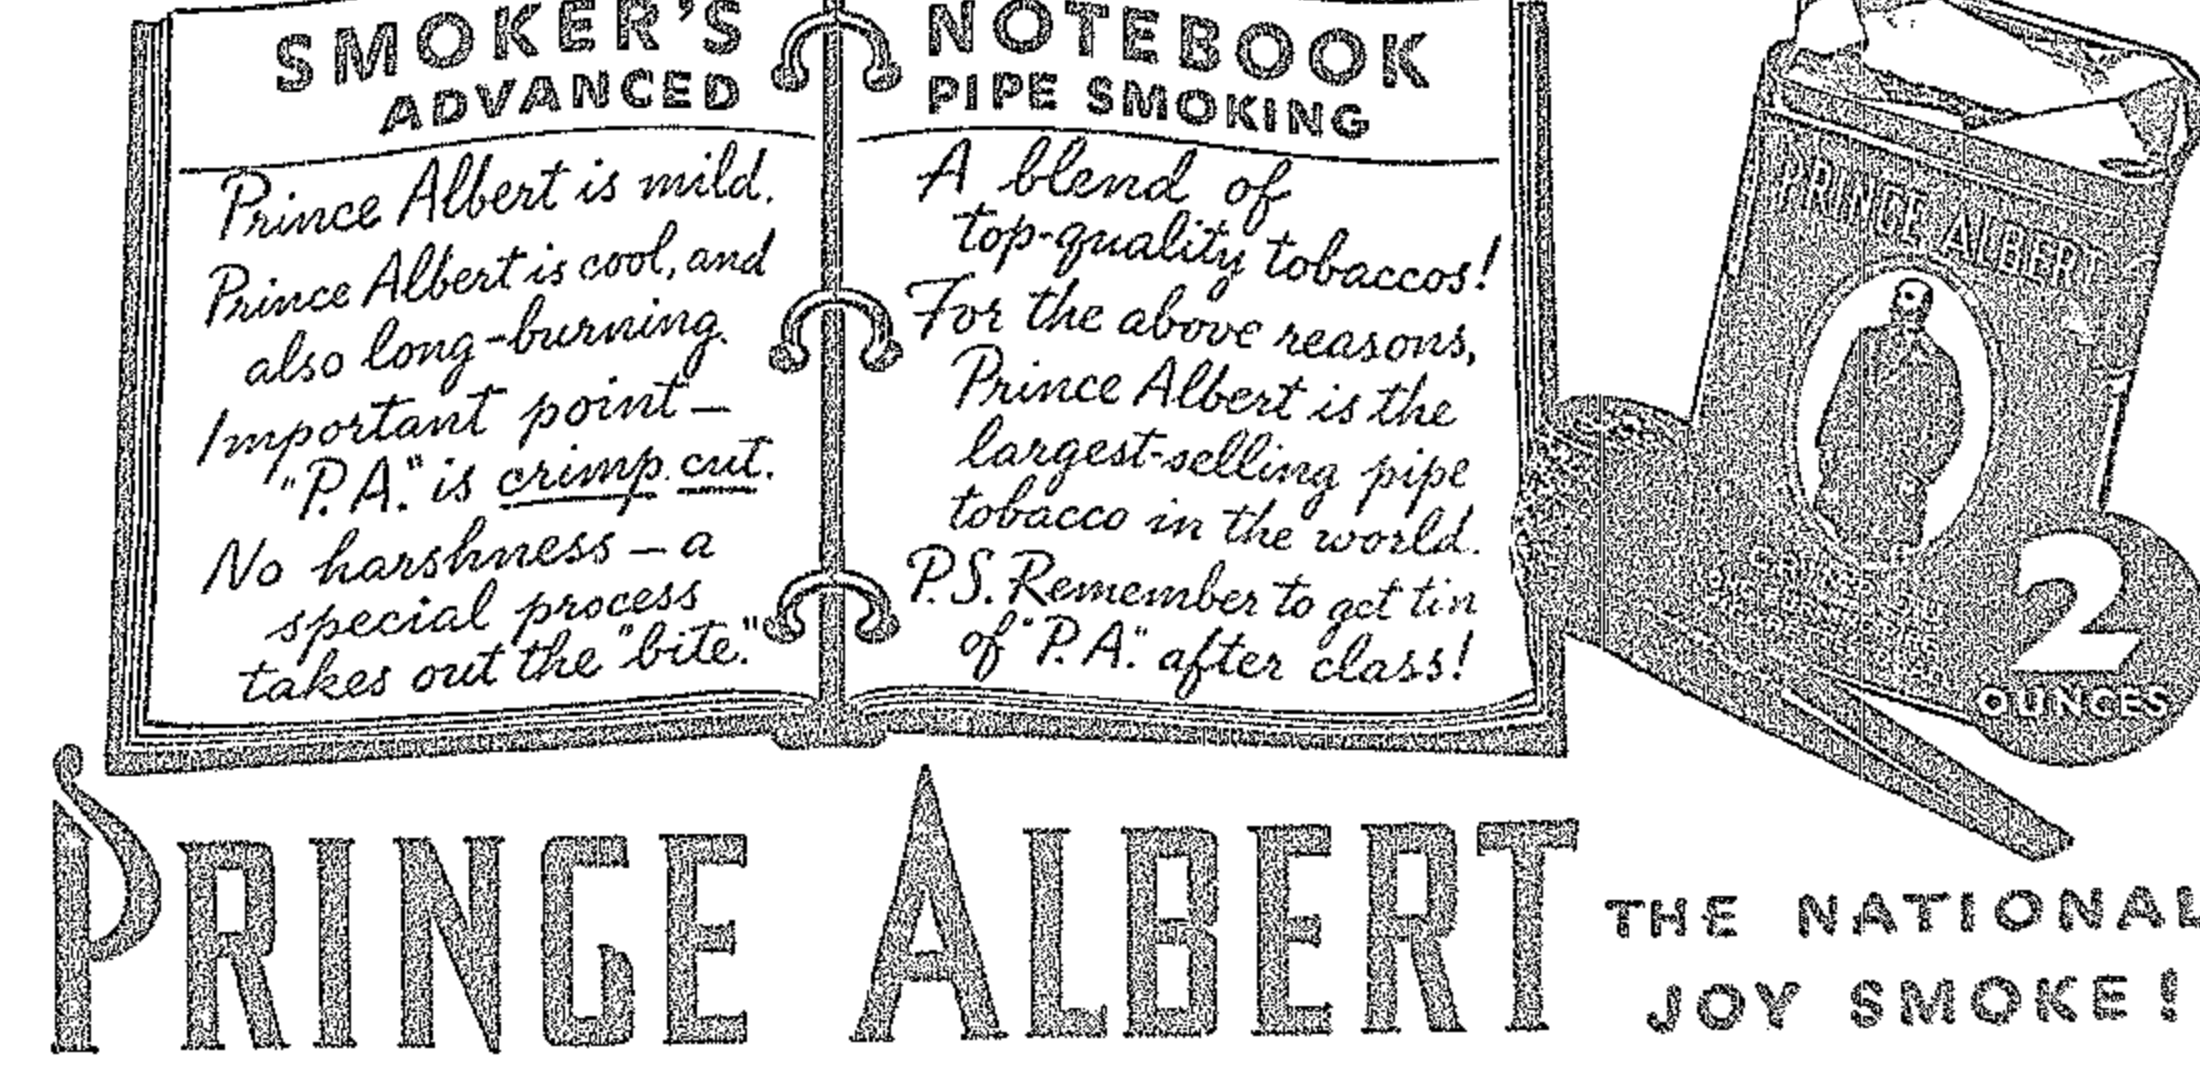 SMOKER'S
ADVANCED
Prince Albert is mild.
Prince Albert is cool, and
also long-burning.
Important point—
"P.A." is crimp cut.
No harshness—a
special process
takes out the "bite."
NOTEBOOK
PIPE SMOKING
A blend of
top-quality tobaccos!
For the above reasons,
Prince Albert is the
largest-selling pipe
tobacco in the world.
P.S. Remember to get tin
of "P.A." after class!
PRINCE ALBERT
2
OUNCES
PRINCE ALBERT
THE NATIONAL
JOY SMOKE!